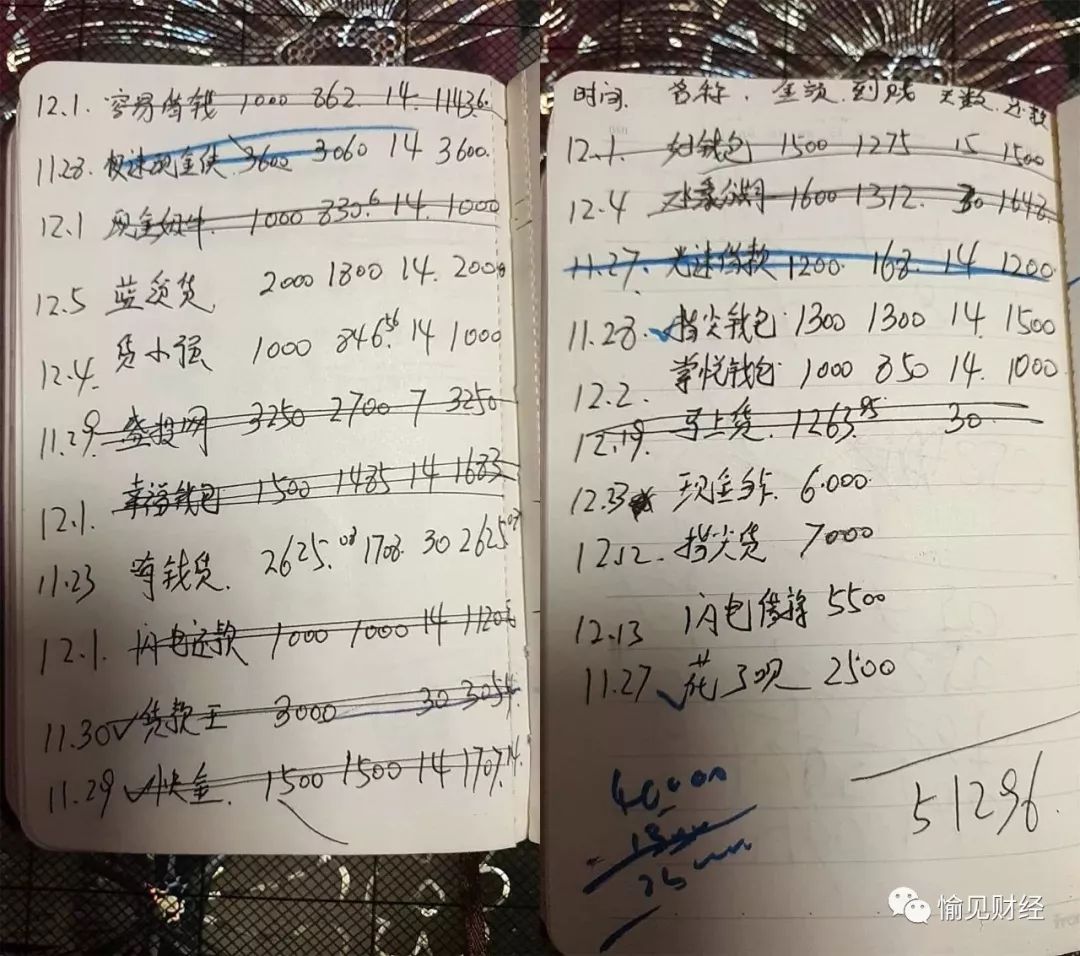 12.1. 容易借钱 1000 862. 14. 1143.6
11.28. 极速现金侠 3600 3060 14 3600.
12.1 现金蜗牛. 1000 830.6 14. 1000
12.5 蓝领贷. 2000 1800 14. 2000
12.4. 贷小强 1000 846.56 14 1000
11.29. 盛投网 3250 2700 7 3250
12.1. 幸福钱包 1500 1485 14 1683
11.23 有钱贷. 2625.08 1708. 30 2625.07
12.1. 闪电还款 1000 1000 14 1120
11.30 ✓贷款王 3000 30 3054
11.29 ✓快金. 1500 1500 14 1707.14
时间. 名称. 金额. 到账 天数. 还款
12.1. 钱包 1500 1275 15 1500
12.4 分期 1600 1312. 30 1648
11.27. 光速借款 1200. 168. 14 1200
11.28. ✓指尖钱包 1300 1300 14 1500
12.2. 掌悦钱包 1000 850 14. 1000
12.19. 马上贷. 1263.95 30
12.3 现金 6.000.
12.12. 指尖贷 7000
12.13 闪电借 5500
11.27 ✓花了呗 2500
40000
51296.
愉见财经